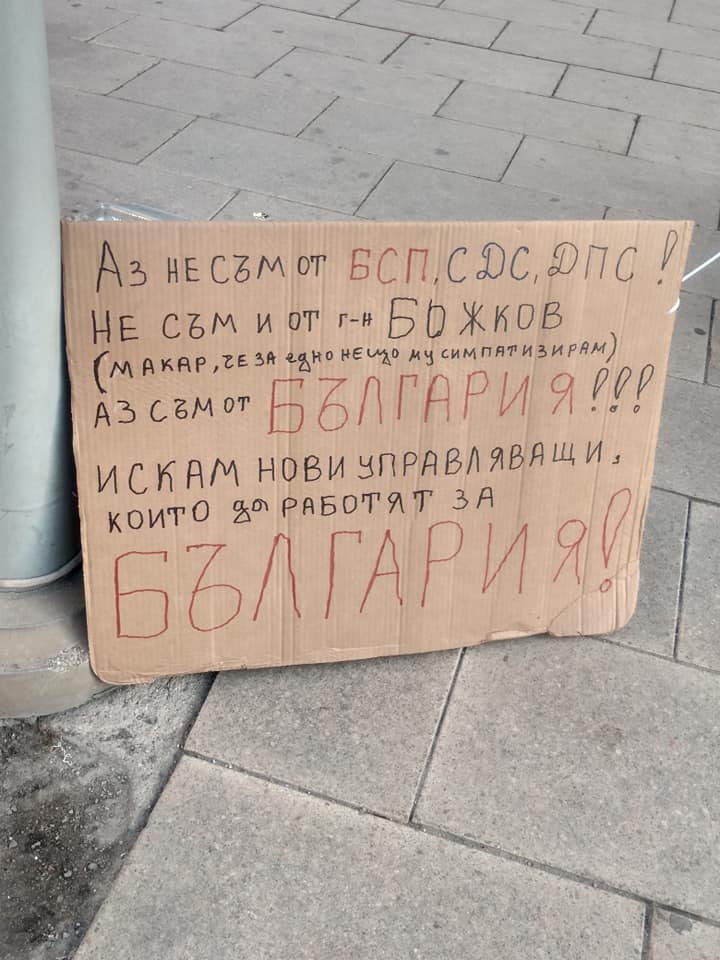 Аз не съм от БСП, СДС, ДПС!
не съм и от г-н БОЖКОВ
(макар, че за едно нещо му симпатизирам)
аз съм от БЪЛГАРИЯ!!!
искам нови управляващи,
които да работят за
БЪЛГАРИЯ!